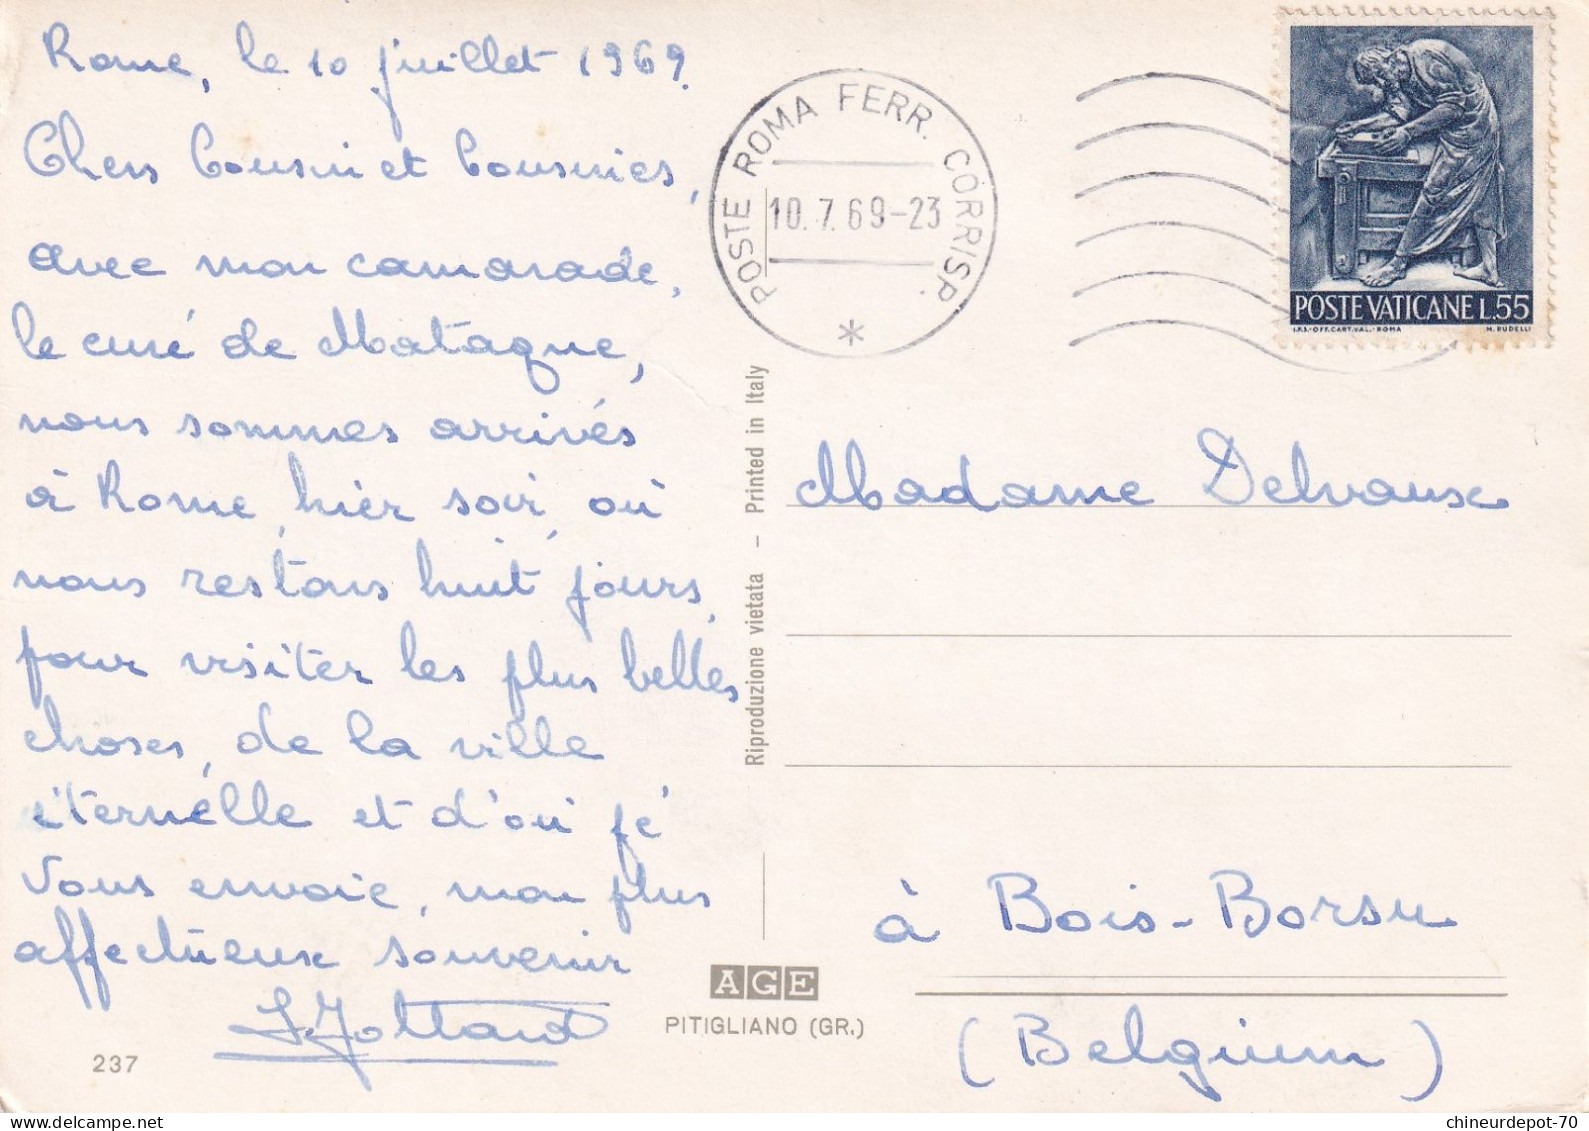 Rome, le 10 juillet 1969
Chers Cousin et Cousines,
avec mon camarade,
le curé de Matagne,
nous sommes arrivés
à Rome, hier soir, où
nous restons huit jours,
pour visiter les plus belles
choses, de la ville
éternelle et d'où je
vous envoie, mon plus
affectueux souvenir
237
POSTE ROMA FERR. CORRISP.
10.7.69-23
POSTE VATICANE L.55
I.P.S.-OFF.CART.VAL.-ROMA M. RUDELLI
Riproduzione vietata - Printed in Italy
AGE
PITIGLIANO (GR.)
Madame Delvaux
à Bois-Borsu
(Belgium)
chineurdepot-70